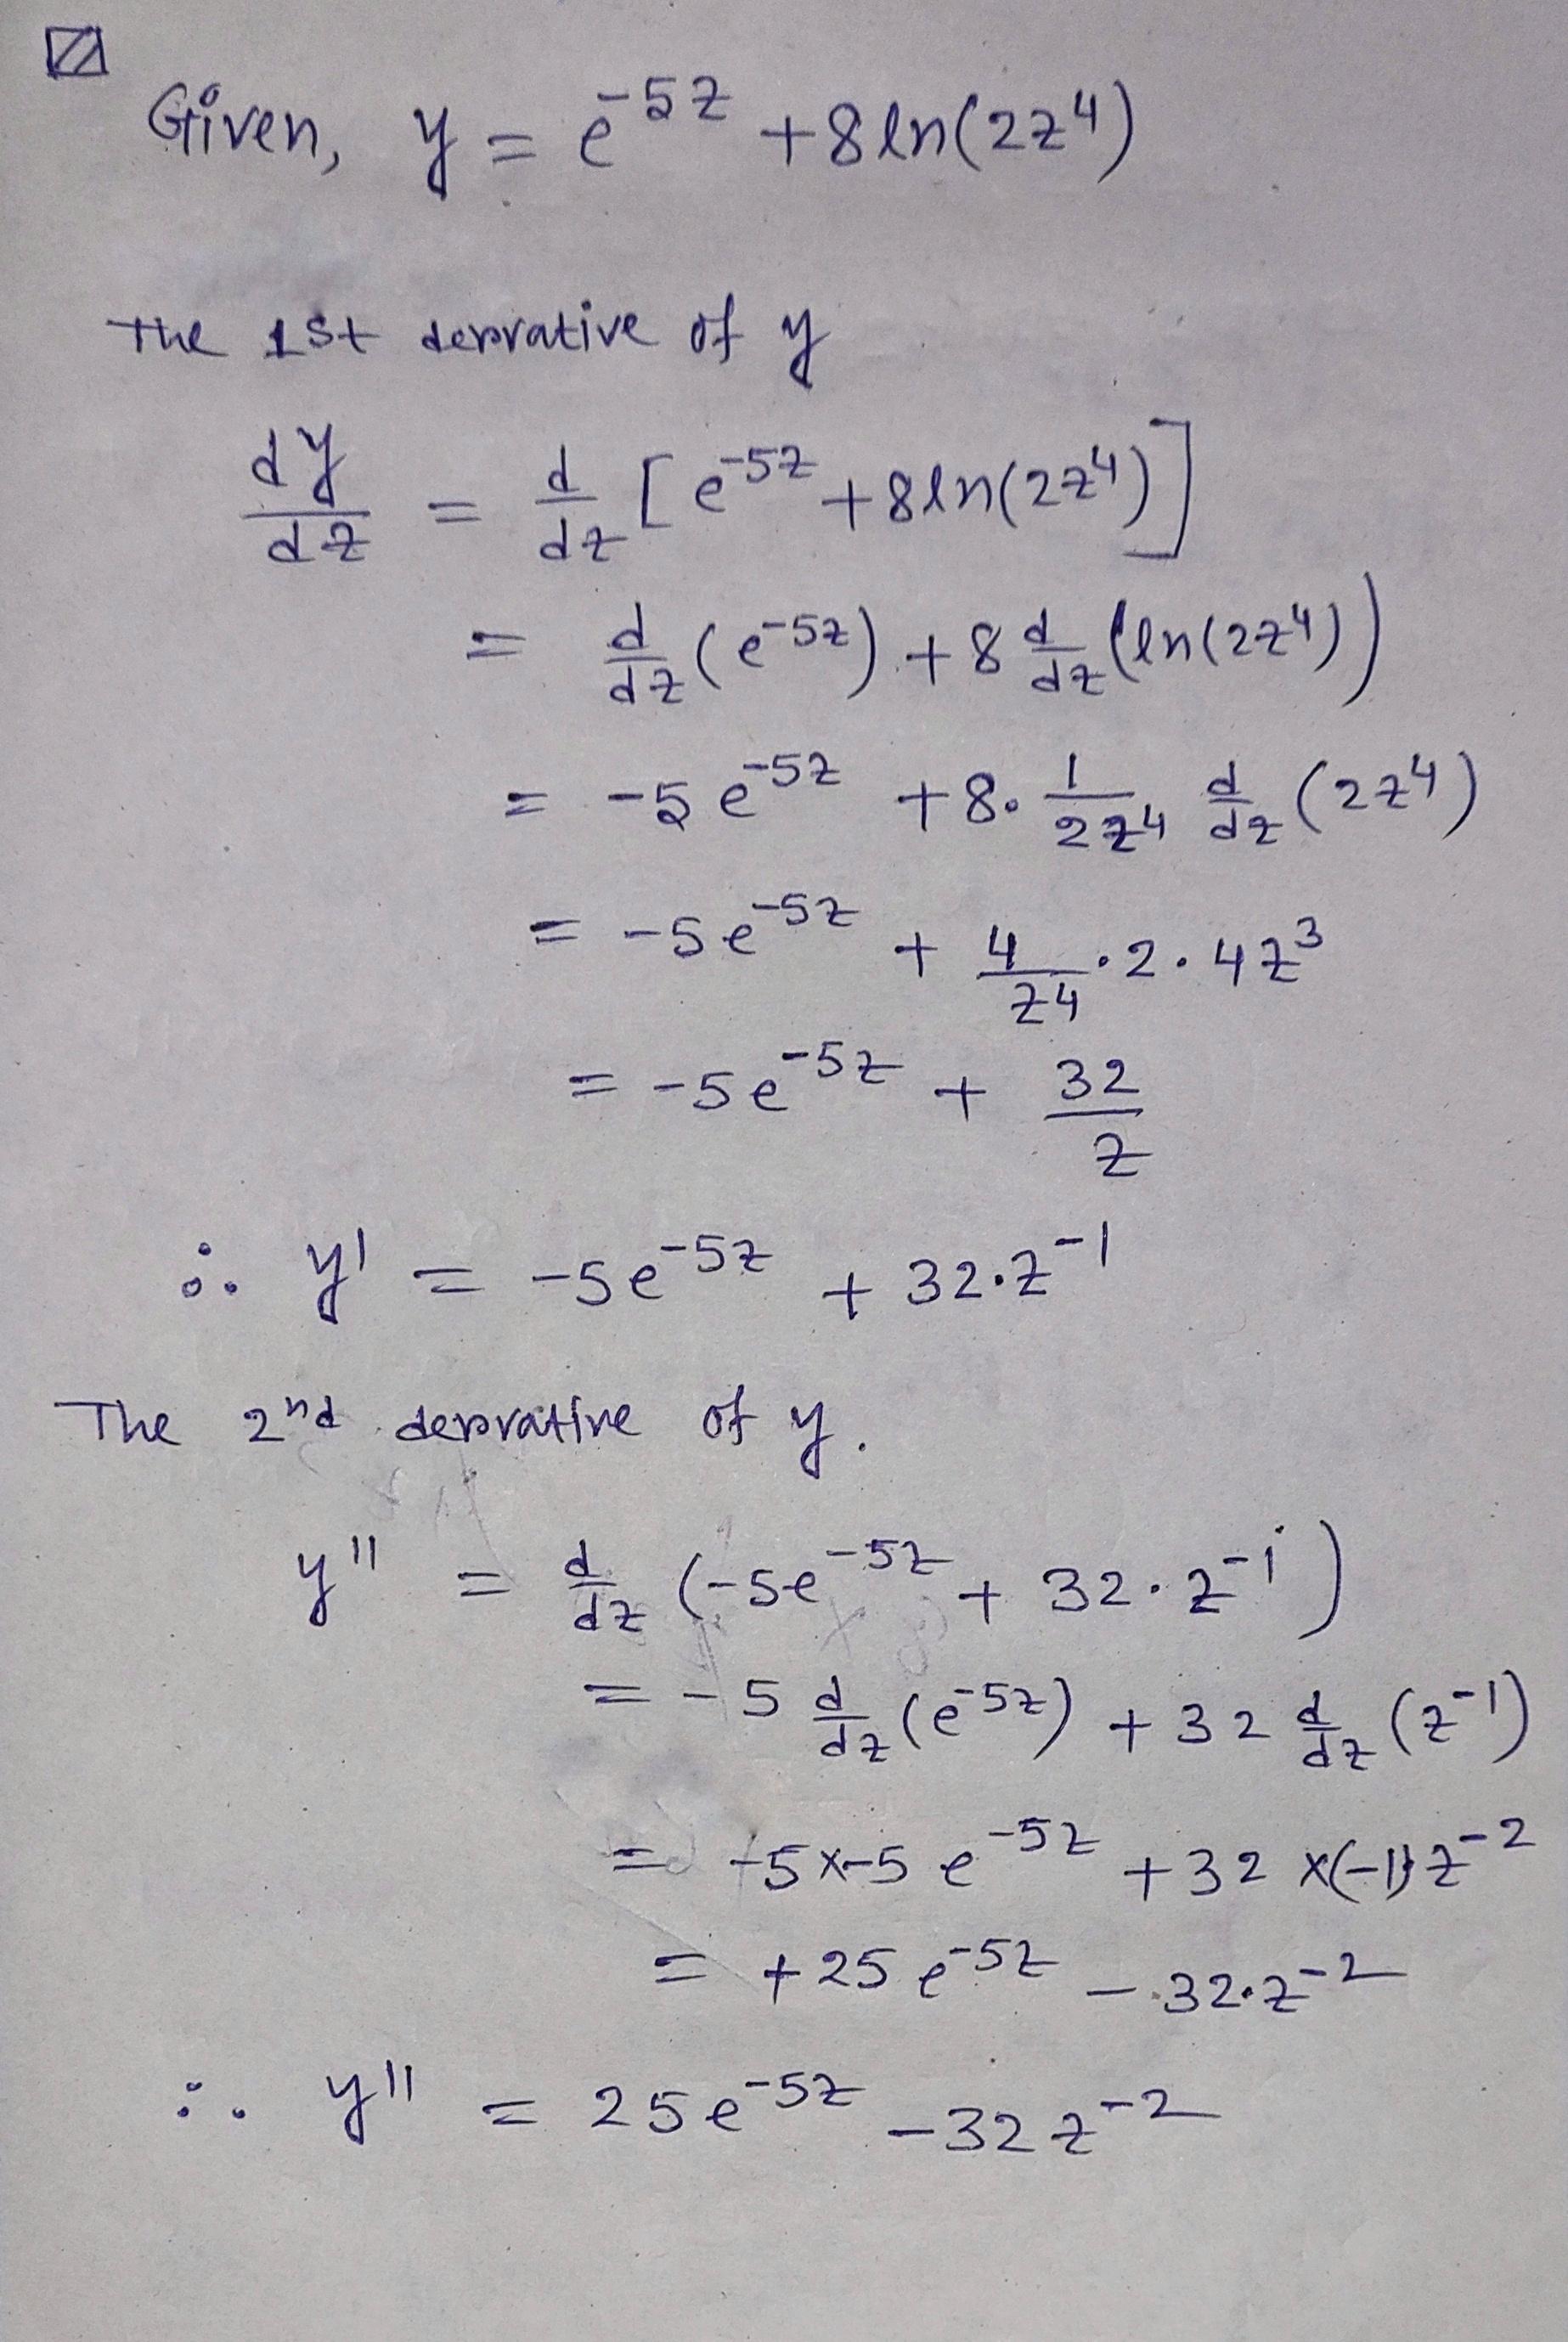 Given, y = e^{-5z} + 8 ln(2z^4)
The 1st derivative of y
dy/dz = d/dz [e^{-5z} + 8 ln(2z^4)]
= d/dz (e^{-5z}) + 8 d/dz (ln(2z^4))
= -5 e^{-5z} + 8 · 1/2z^4 d/dz (2z^4)
= -5e^{-5z} + 4/z^4 · 2 · 4z^3
= -5e^{-5z} + 32/z
∴ y' = -5e^{-5z} + 32·z^{-1}
The 2nd derivative of y.
y'' = d/dz (-5e^{-5z} + 32·z^{-1})
= -5 d/dz (e^{-5z}) + 32 d/dz (z^{-1})
= -5 × -5 e^{-5z} + 32 × (-1) z^{-2}
= +25 e^{-5z} - 32·z^{-2}
∴ y'' = 25e^{-5z} - 32 z^{-2}